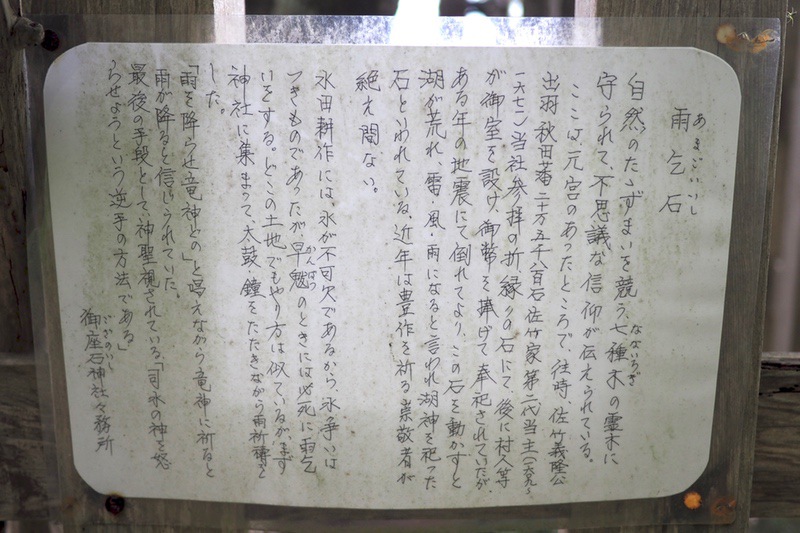 雨乞石
あまごいいし
自然のたゝずまいを競う七種木の霊木に
なないろぎ
守られて、不思議な信仰が伝えられている。
ここは、元宮のあったところで、往時、佐竹義隆公
出羽秋田藩二十万五千八百石佐竹家第二代当主
一六七一)当社参拝の折、縁りの石にて、後に村人等
が御室を設け、御幣を捧げて奉祀されていたが、
ある年の地震にて倒れてより、この石を動かすと
湖が荒れ、雷・風・雨になると言われ湖神を祀った
石といわれている。近年は豊作を祈る崇敬者が
絶え間ない。
水田耕作には、水が不可欠であるから、水争いは
つきものであったが、早魃のときには必死に雨乞
かんばつ
いをする。どこの土地でもやり方は似ているが、まず
神社に集まって、太鼓・鐘をたたきながら雨祈祷を
した。
「雨を降らせ竜神との」と唱えながら竜神に祈ると
雨が降ると信じられていた。
最後の手段として、神聖視されている、「司水の神を怒
らせようという逆手の方法である」
ござのいし
御座石神社々務所